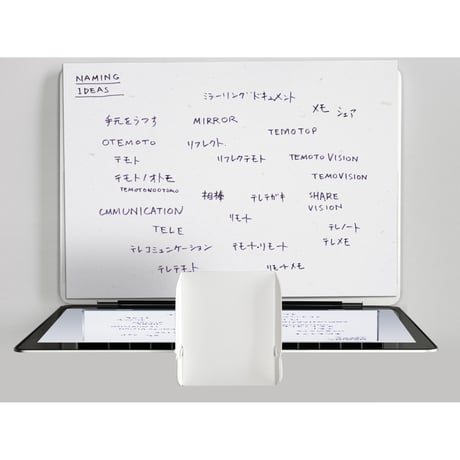 NAMING
IDEAS
ミラーリングドキュメント
メモ シェア
手元をうつす MIRROR
TEMOTOP
OTEMOTO リフレクト
テモト リフレクテモト TEMOTO VISION
テモト/オトモ TEMOVISION
相棒 テレテガキ SHARE
VISION
CMMUNICATION リモート
TELE テレノート
テレコミュニケーション テモト・リモート テレメモ
テレテモト リモトメモ